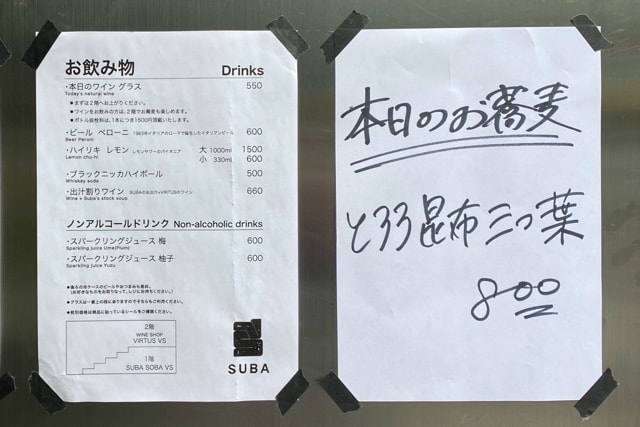 お飲み物 Drinks
・本日のワイン グラス 550
Today's natural wine
●まずは2階へお上がりください。
●ワインをお飲みの方は、2階でお蕎麦も楽しめます。
●ボトル抜栓料は、1本につき1500円頂戴いたします。
・ビール ペローニ 1963年イタリアのローマで誕生したイタリアンビール 600
Beer Peroni
・ハイリキ レモン レモンサワーのパイオニア 大 1000ml 1500
Lemon chu-hi 小 330ml 600
・ブラックニッカハイボール 500
Whiskey soda
・出汁割りワイン SUBAのお出汁+VIRTUSのワイン 660
Wine + Suba's stock soup
ノンアルコールドリンク Non-alcoholic drinks
・スパークリングジュース 梅 600
Sparkling juice Ume(Plum)
・スパークリングジュース 柚子 600
Sparkling juice Yuzu
●後ろの冷ケースのビールやおつまみも是非。
(お好きなものをお取りなって、レジにお持ちください。)
●グラスは一番上の段にありますのでそちらもご利用ください。
●税別価格は商品に貼っているシールをご確認ください。
2階
WINE SHOP
VIRTUS VS
1階
SUBA SOBA VS
SUBA
本日のお蕎麦
とろろ昆布三つ葉
800